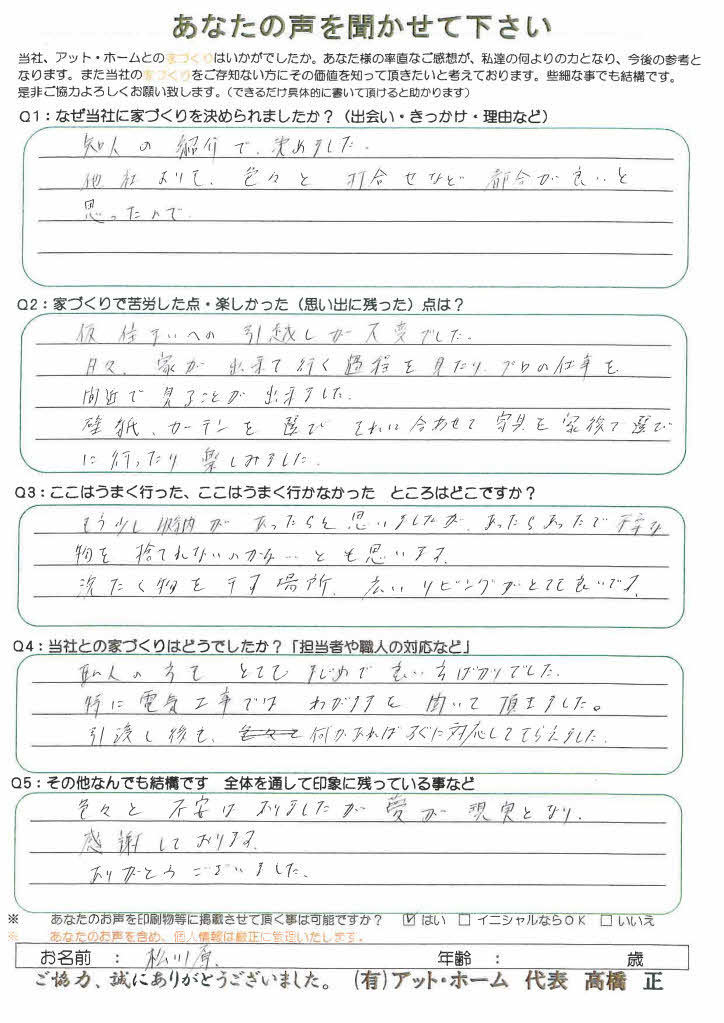 あなたの声を聞かせて下さい
当社、アット・ホームとの家づくりはいかがでしたか。あなた様の率直なご感想が、私達の何よりの力となり、今後の参考と
なります。また当社の家づくりをご存知ない方にその価値を知って頂きたいと考えております。些細な事でも結構です。
是非ご協力よろしくお願い致します。（できるだけ具体的に書いて頂けると助かります）
Q1：なぜ当社に家づくりを決められましたか？（出会い・きっかけ・理由など）
知人の紹介で、決めました。
他社よりも、色々と打合せなど都合が良いと
思ったので。
Q2：家づくりで苦労した点・楽しかった（思い出に残った）点は？
仮住まいへの引越しが大変でした。
日々、家が出来て行く過程を見たり、プロの仕事を
間近で見ることが出来ました。
壁紙、カーテンを選び それに合わせて家具を家族で選び
に行ったり楽しみました。
Q3：ここはうまく行った、ここはうまく行かなかった　ところはどこですか？
もう少し収納があったらと思いましたが、あったらあったで不要な
物を捨てれないのかな…とも思います。
洗たく物を干す場所、広いリビングがとても良いです。
Q4：当社との家づくりはどうでしたか？「担当者や職人の対応など」
職人の方も とてもまじめで良い方ばかりでした。
特に電気工事では わがままを聞いて頂きました。
引渡し後も、何かあればすぐに対応してもらえました。
Q5：その他なんでも結構です　全体を通して印象に残っている事など
色々と不安はありましたが夢が現実となり、
感謝しております。
ありがとうございました。
※　あなたのお声を印刷物等に掲載させて頂く事は可能ですか？　☑はい　□イニシャルならOK　□いいえ
※　あなたのお声を含め、個人情報は厳正に管理いたします。
お名前　：　松川原　年齢　：　歳
ご協力、誠にありがとうございました。（有）アット・ホーム　代表　高橋　正